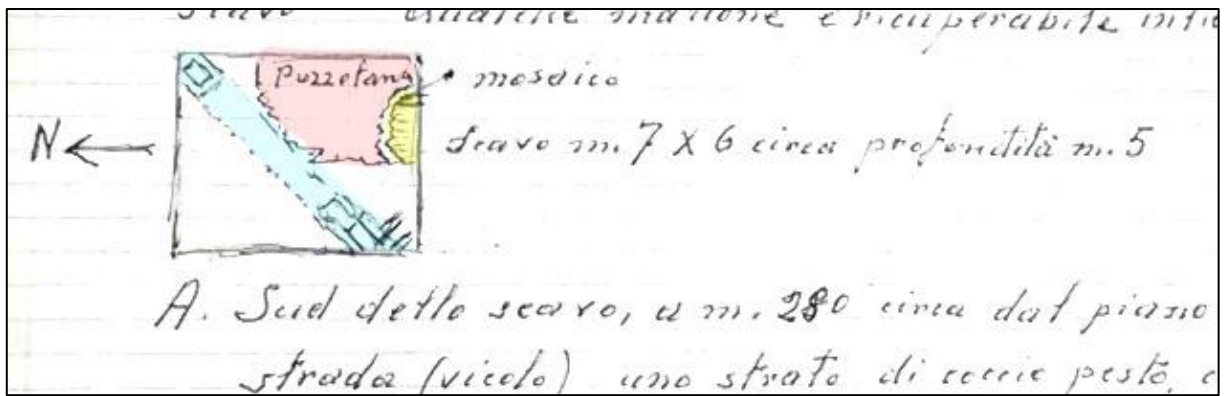 scavo qualche mattone e ricuperabile
Puzzolana
mosaico
N
scavo m. 7 X 6 circa profondità m. 5
A. Sud dello scavo, a m. 280 circa dal piano
strada (vicolo) uno strato di coccio pesto,